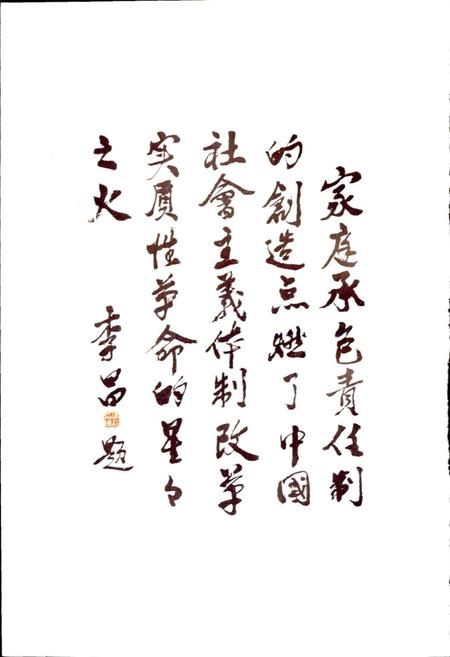 家庭承包責任制
的創造点燃了中國
社會主義体制改革
实质性革命的星々
之火
李昌 题